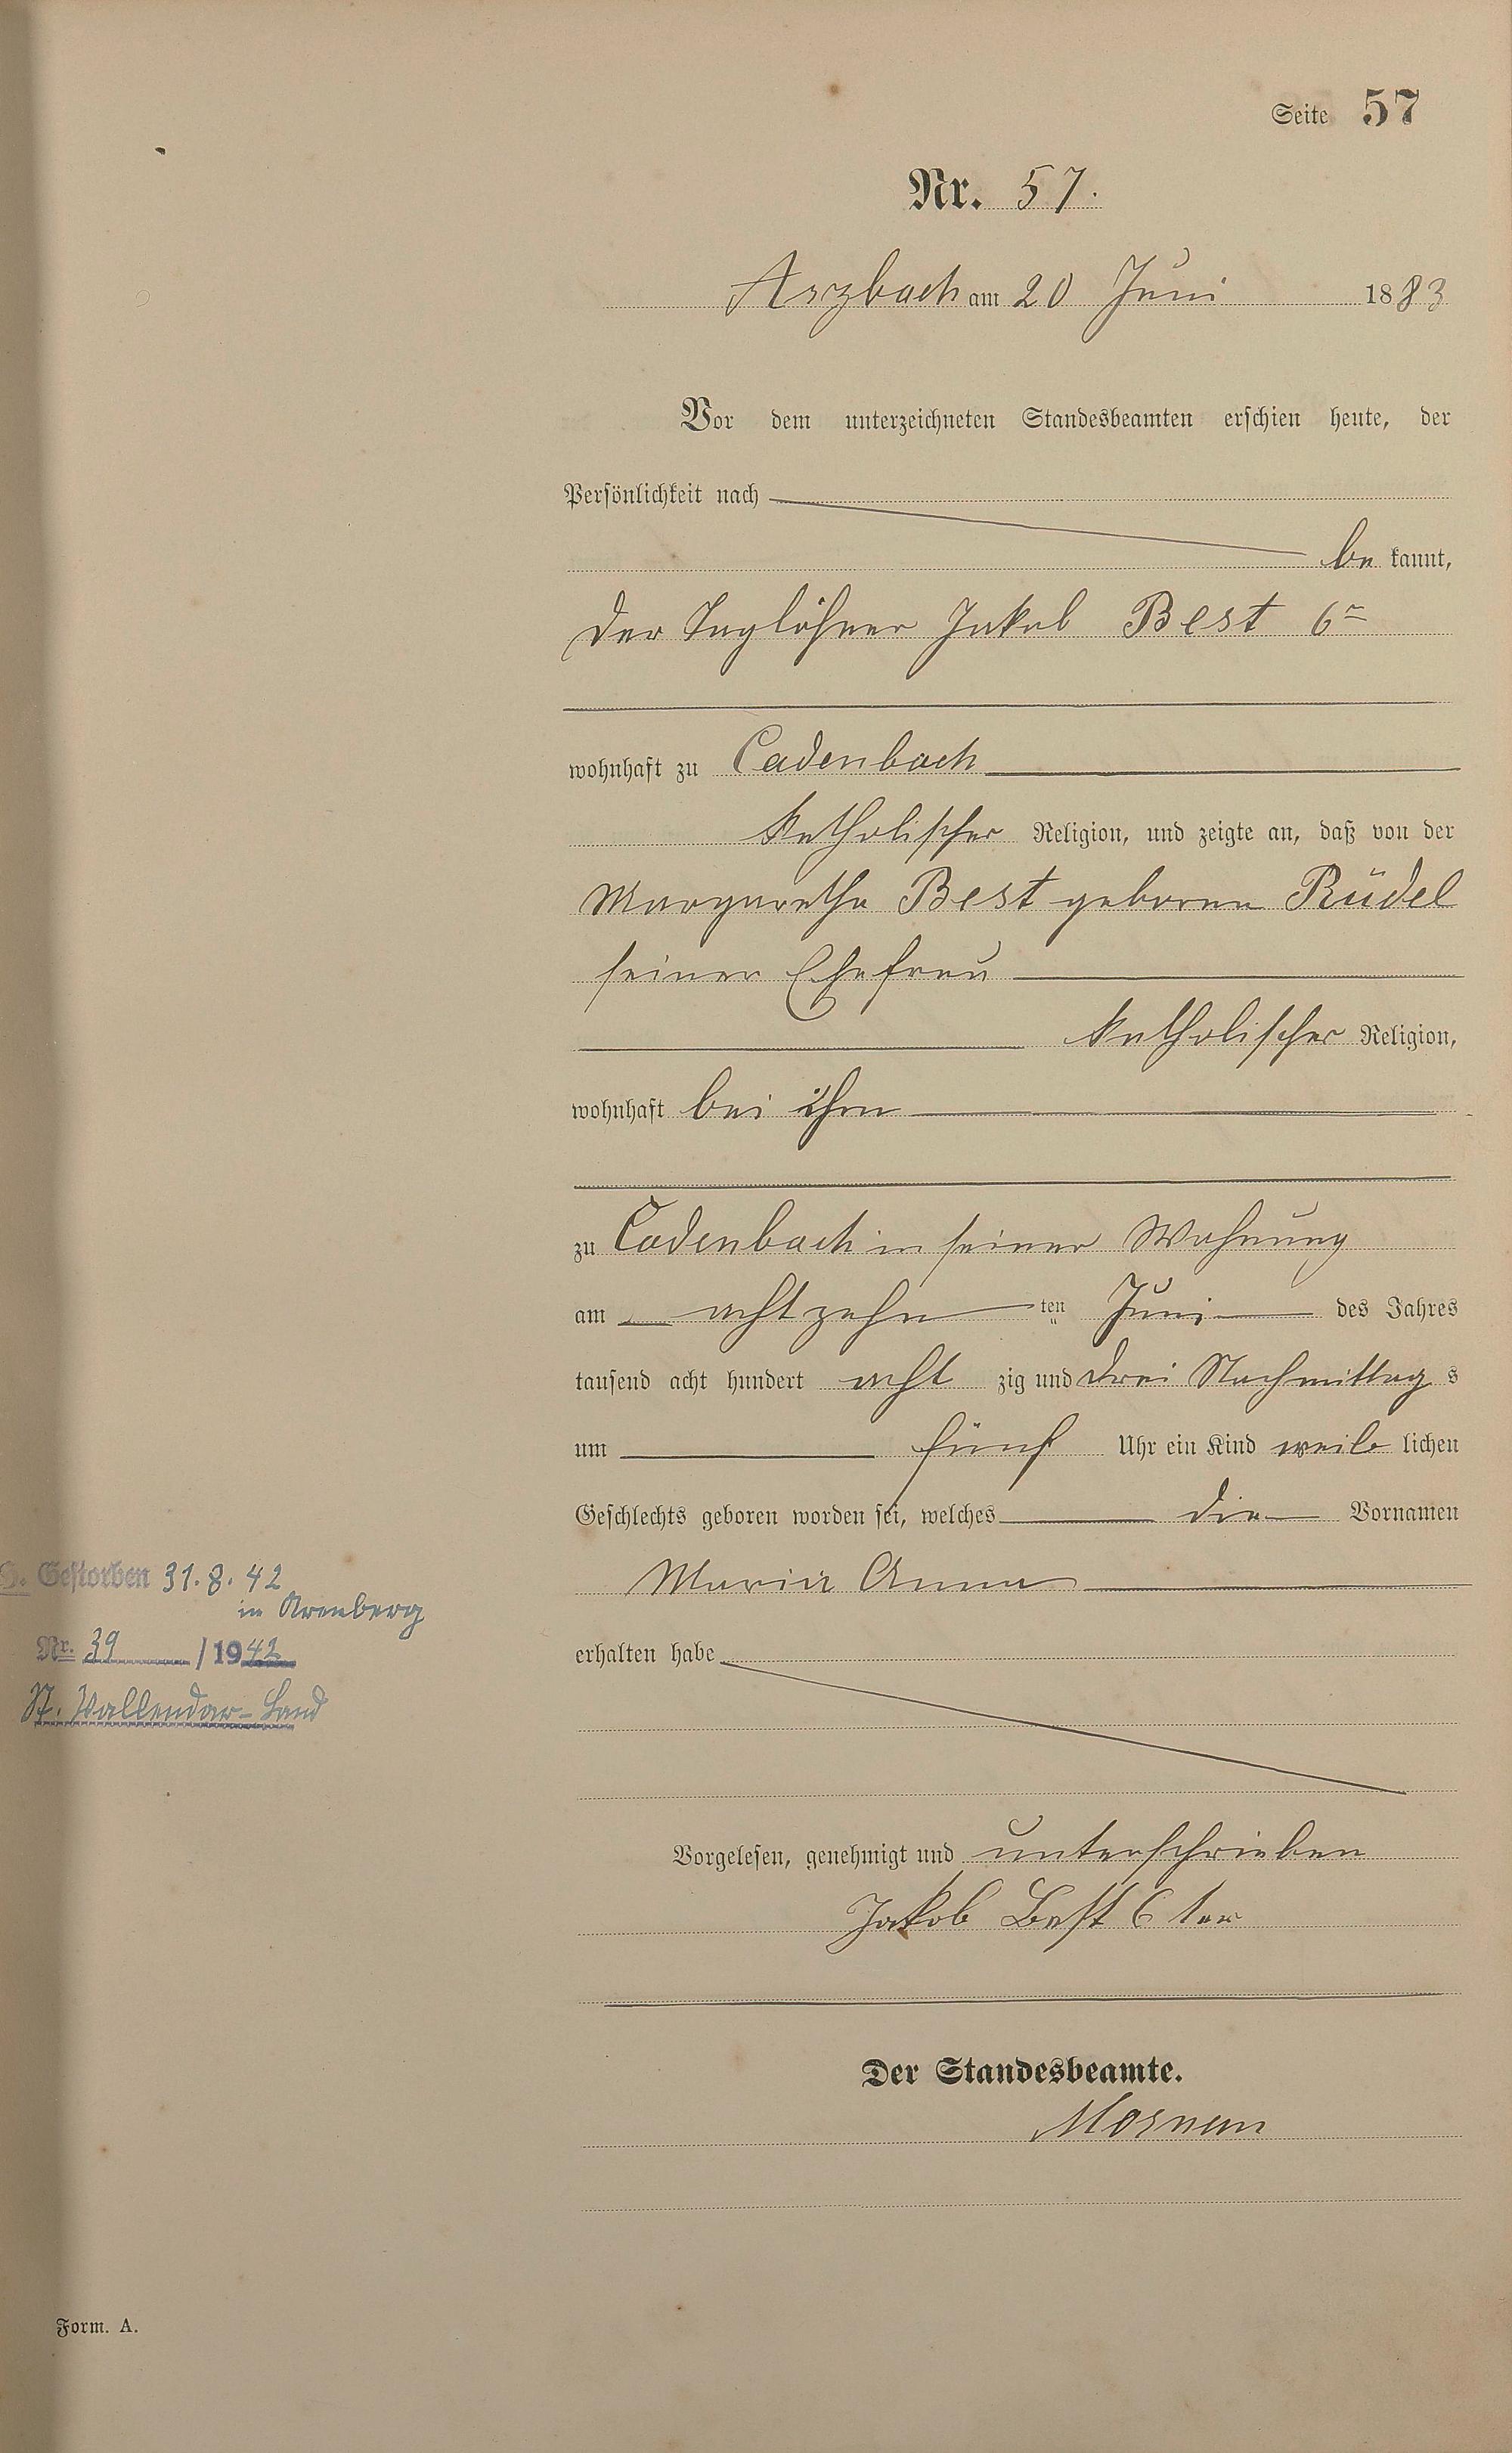 Seite 57
Nr. 57.
Arzbach am 20 Juni 1883
Vor dem unterzeichneten Standesbeamten erschien heute, der
Persönlichkeit nach
be kannt,
der Taglöhner Jakob Best 6r
wohnhaft zu Cadenbach
katholischer Religion, und zeigte an, daß von der
Margaretha Best geborne Rüdel
seiner Ehefrau
katholischer Religion,
wohnhaft bei ihm
zu Cadenbach in seiner Wohnung
am achtzehn ten Juni des Jahres
tausend acht hundert acht zig und drei Nachmittag s
um fünf Uhr ein Kind weib lichen
Geschlechts geboren worden sei, welches die Vornamen
Maria Anna
erhalten habe
Vorgelesen, genehmigt und unterschrieben
Jakob Best 6ter
Der Standesbeamte.
Gestorben 31.8.42
in Arenberg
Nr. 39 / 1942
St. Vallendar-Land
Form. A.